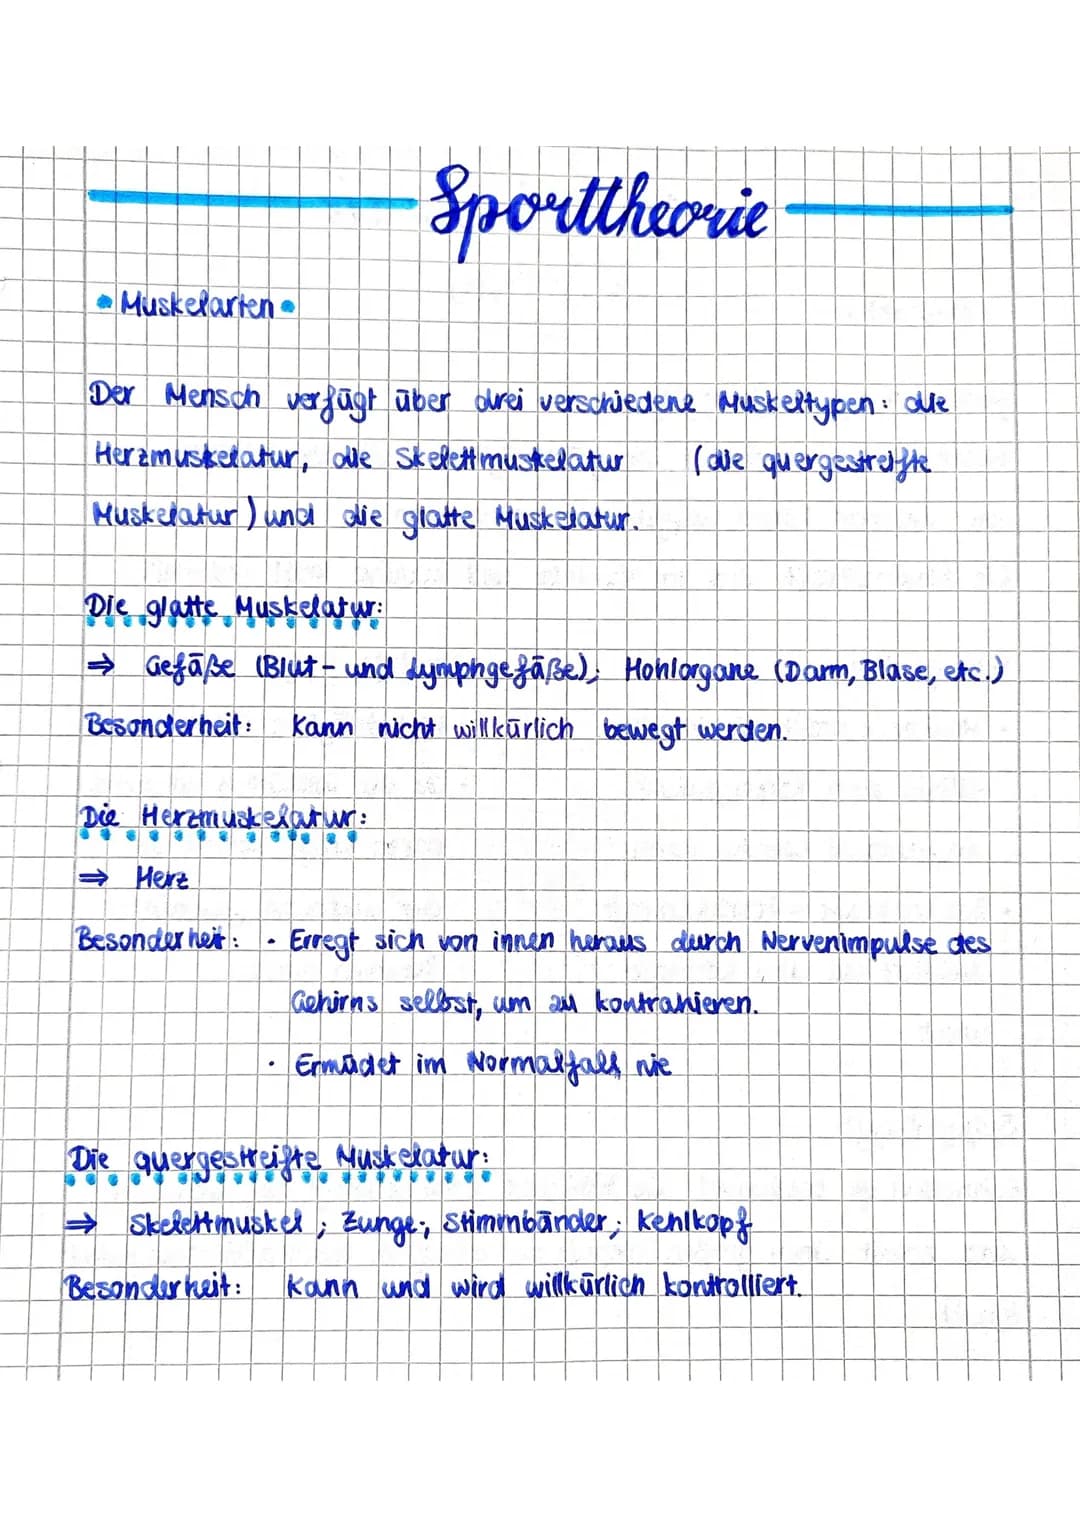 Sporttheorie
• Muskelarten •
Der Mensch verfügt über drei verschiedene Muskeltypen: die
Herzmuskelatur, die Skelettmuskelatur (die quergestreifte
Muskelatur) und die glatte Muskelatur.
Die glatte Muskelatur:
⇒ Gefäße (Blut- und Lymphgefäße); Hohlorgane (Darm, Blase, etc.)
Besonderheit: Kann nicht willkürlich bewegt werden.
Die Herzmuskelatur:
⇒ Herz
Besonderheit: · Erregt sich von innen heraus durch Nervenimpulse des
Gehirns selbst, um zu kontrahieren.
· Ermüdet im Normalfall nie
Die quergestreifte Muskelatur:
⇒ Skelettmuskel; Zunge; Stimmbänder; Kehlkopf
Besonderheit: Kann und wird willkürlich kontrolliert.